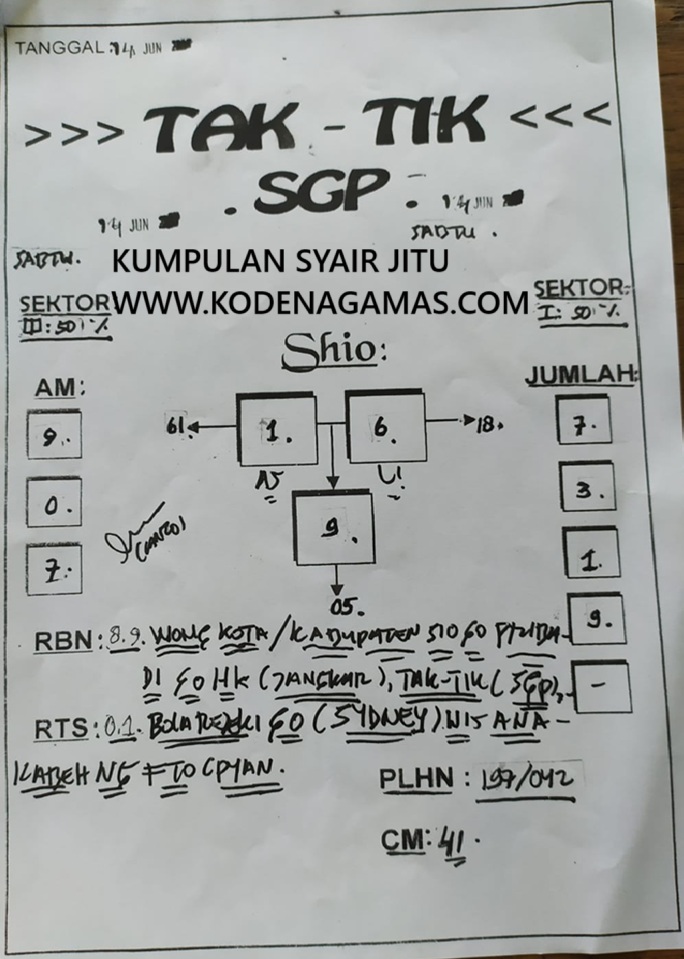 TANGGAL : 14 JUN
>>> TAK - TIK <<<
. SGP .
14 JUN
14 JUN
SABTU.
SABTU .
KUMPULAN SYAIR JITU
WWW.KODENAGAMAS.COM
SEKTOR
III: 50 %
SEKTOR:
I: 50 %
Shio:
AM:
JUMLAH:
61. 1. 6. 18.
9.
0.
7.
9.
05.
7.
3.
1.
9.
-
RBN: 8.9. WONG KOTA/KABUPATEN
DI GO HK (JANGKAR), TAK-TIK (SGP),
RTS: 0.1. GO (SYDNEY) WIS ANA-
KABEH NG
PLHN : 199/042
CM: 41.